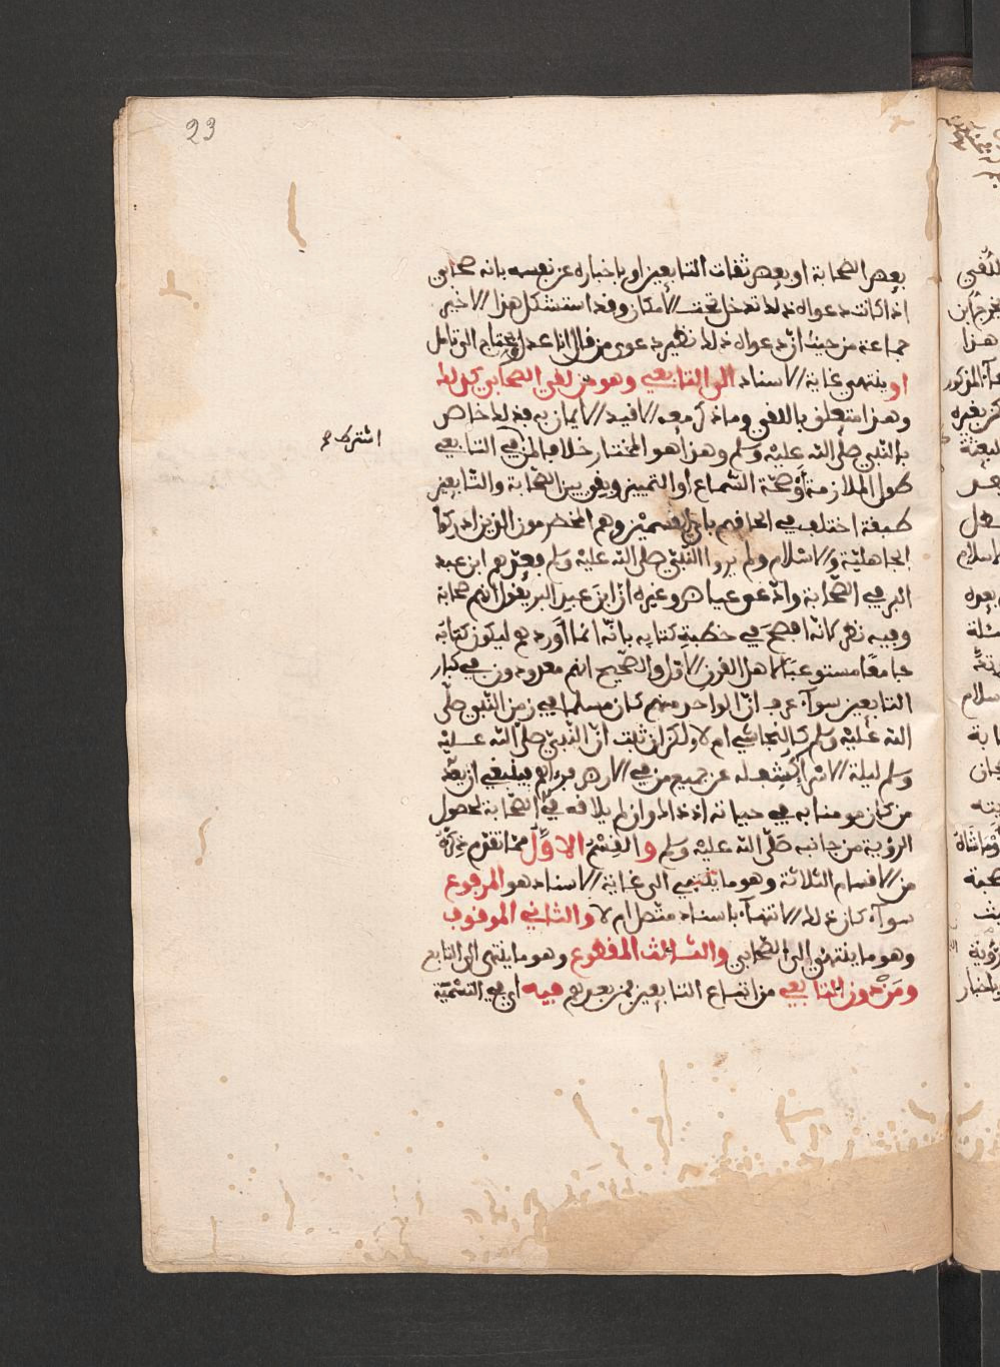 23
بعض الصحابة او بعض ثقات التابعين او باخباره عن نفسه بانه صحابي
اذا كانت دعواه ذلك تدخل تحت الامكان وقد استشكل هذا الاخير
جماعة من حيث ان دعواه ذلك نظير دعوى من قال انا عدل ويحتاج الى تامل
او ينتهي غاية الاسناد الى التابعي وهو من لقي الصحابي كذلك
وهذا متعلق باللقي وما ذكر معه الا قيد الايمان به فذلك خاص
بالنبي صلى الله عليه وسلم وهذا هو المختار خلافا لمن في التابعي
اشترط
طول الملازمة او صحة السماع او التمييز وبقي بين الصحابة والتابعين
طبقة اختلف في الحاقهم باي القسمين وهم المخضرمون الذين ادركوا
الجاهلية والاسلام ولم يروا النبي صلى الله عليه وسلم فعدهم ابن عبد
البر في الصحابة وادعى عياض وغيره ان ابن عبد البر يقول انهم صحابة
وفيه نظر لانه افصح في خطبة كتابه بانه انما اوردهم ليكون كتابه
جامعا مستوعبا لاهل القرن الاول والصحيح انهم معدودون في كبار
التابعين سواء عرف ان الواحد منهم كان مسلما في زمن النبي صلى
الله عليه وسلم كالنجاشي ام لا ولكن ان ثبت ان النبي صلى الله عليه
وسلم ليلة الاسرا كشف له عن جميع من في الارض فرءاهم فينبغي ان يعد
من كان مومنا به في حياته اذ ذاك وان لم يلاقه في الصحابة لحصول
الرؤية من جانبه صلى الله عليه وسلم والقسم الاول مما تقدم ذكره
من الاقسام الثلاثة وهو ما ينتهي الى غاية الاسناد هو المرفوع
سواء كان ذلك الانتهاء باسناد متصل ام لا والثاني الموقوف
وهو ما ينتهي الى الصحابي والثالث المقطوع وهو ما ينتهى الى التابع
ومن دون التابعي من اتباع التابعين فمن بعدهم فيه اي في التسمية